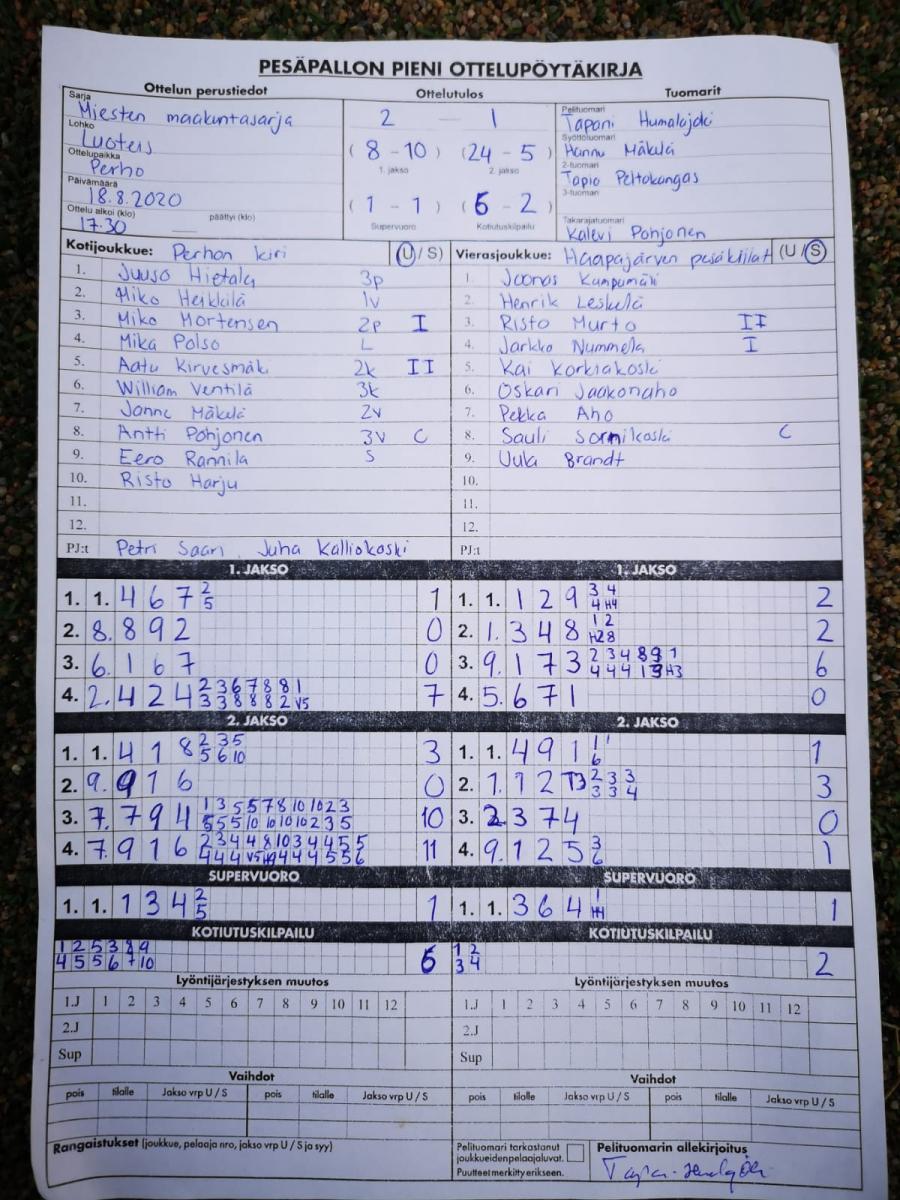 PESÄPALLON PIENI OTTELUPÖYTÄKIRJA
Ottelun perustiedot Ottelutulos Tuomarit
Sarja
Miesten maakuntasarja
Lohko
Ottelupaikka
Perho
Päivämäärä
18.8.2020
Ottelu alkoi (klo) päättyi (klo)
17.30
2 — 1
( 8 - 10 ) ( 24 - 5 )
1. jakso 2. jakso
( 1 - 1 ) ( 6 - 2 )
Supervuoro Kotiutuskilpailu
Pelituomari
Tapani Humalajoki
Syöttötuomari
Hannu Mäkelä
2-tuomari
Tapio Peltokangas
3-tuomari
Takarajatuomari
Kalevi Pohjonen
Kotijoukkue: Perhon kiri (U / S) Vierasjoukkue: Haapajärven pesäkiilat (U / S)
1. Juuso Hietala 3p
2. Miko Heikkilä 1v
3. Miko Mortensen 2p I
4. Mika Polso L
5. Aatu Kirvesmäk 2k II
6. William Ventilä 3k
7. Janne Mäkelä 2v
8. Antti Pohjonen 3v C
9. Eero Rannila S
10. Risto Harju
11.
12.
PJ:t Petri Saari, Juha Kalliokoski
1. Joonas Kumpumäki
2. Henrik Leskelä
3. Risto Murto II
4. Jarkko Nummela I
5. Kai Korkiakoski
6. Oskari Jaakonaho
7. Pekka Aho
8. Sauli Sornikoski C
9. Brandt
10.
11.
12.
PJ:t
1. JAKSO 1. JAKSO
1. 1. 4 6 7 2 5 1
2. 8. 8 9 2 0
3. 6. 1 6 7 0
4. 2. 4 2 4 2 3 6 7 8 8 1
3 3 8 8 8 2 V5 7
1. 1. 1 2 9 3 4
4 H4 2
2. 1. 3 4 8 1 2
H2 8 2
3. 9. 1 7 3 2 3 4 8 9 1
4 4 4 1 3 H3 6
4. 5. 6 7 1 0
2. JAKSO 2. JAKSO
1. 1. 4 1 8 2 3 5
5 6 10 3
2. 9. 9 1 6 0
3. 7. 7 9 4 1 3 5 5 7 8 10 10 2 3
5 5 5 10 10 10 10 2 3 5 10
4. 7. 9 1 6 2 3 4 4 8 10 3 4 4 5 5
4 4 4 V5 4 4 4 5 5 6 11
1. 1. 4 9 1 1 1
6 1
2. 1. 1 2 T3 2 3 3
3 3 4 3
3. 2. 3 7 4 0
4. 9. 1 2 5 3
6 1
SUPERVUORO SUPERVUORO
1. 1. 1 3 4 2
5 1
1. 1. 3 6 4 1
1
KOTIUTUSKILPAILU KOTIUTUSKILPAILU
1 2 5 3 8 9
4 5 5 6 7 10 6
1 2
3 4 2
Lyöntijärjestyksen muutos Lyöntijärjestyksen muutos
1.J 1 2 3 4 5 6 7 8 9 10 11 12 1.J 1 2 3 4 5 6 7 8 9 10 11 12
2.J 2.J
Sup Sup
Vaihdot Vaihdot
pois tilalle Jakso vrp U / S pois tilalle Jakso vrp U / S pois tilalle Jakso vrp U / S pois tilalle Jakso vrp U / S
Rangaistukset (joukkue, pelaaja nro, jakso vrp U / S ja syy)
Pelituomari tarkastanut
joukkueidenpelaajaluvat.
Puutteet merkitty erikseen.
Pelituomarin allekirjoitus